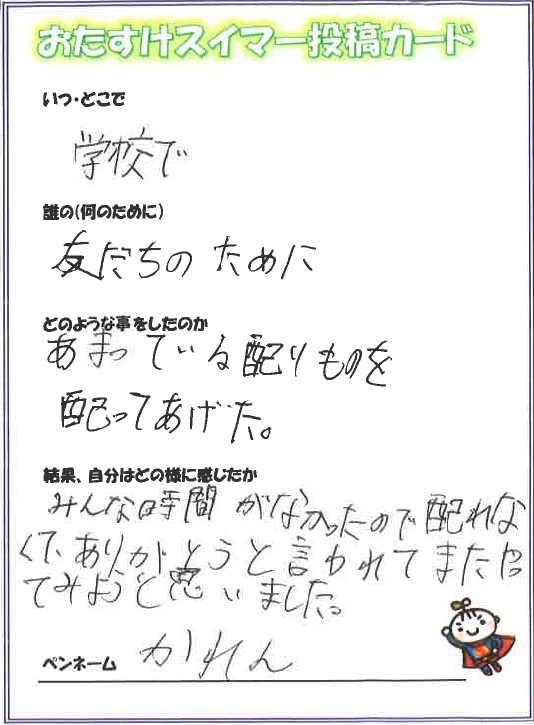 おたすけスイマー投稿カード
いつ・どこで
学校で
誰の(何のために)
友だちの ために
どのような事をしたのか
あまっている配りものを
配ってあげた。
結果、自分はどの様に感じたか
みんな時間がなかったので配れな
くて、ありがとうと言われてまたやっ
てみようと思いました。
ペンネーム かれん